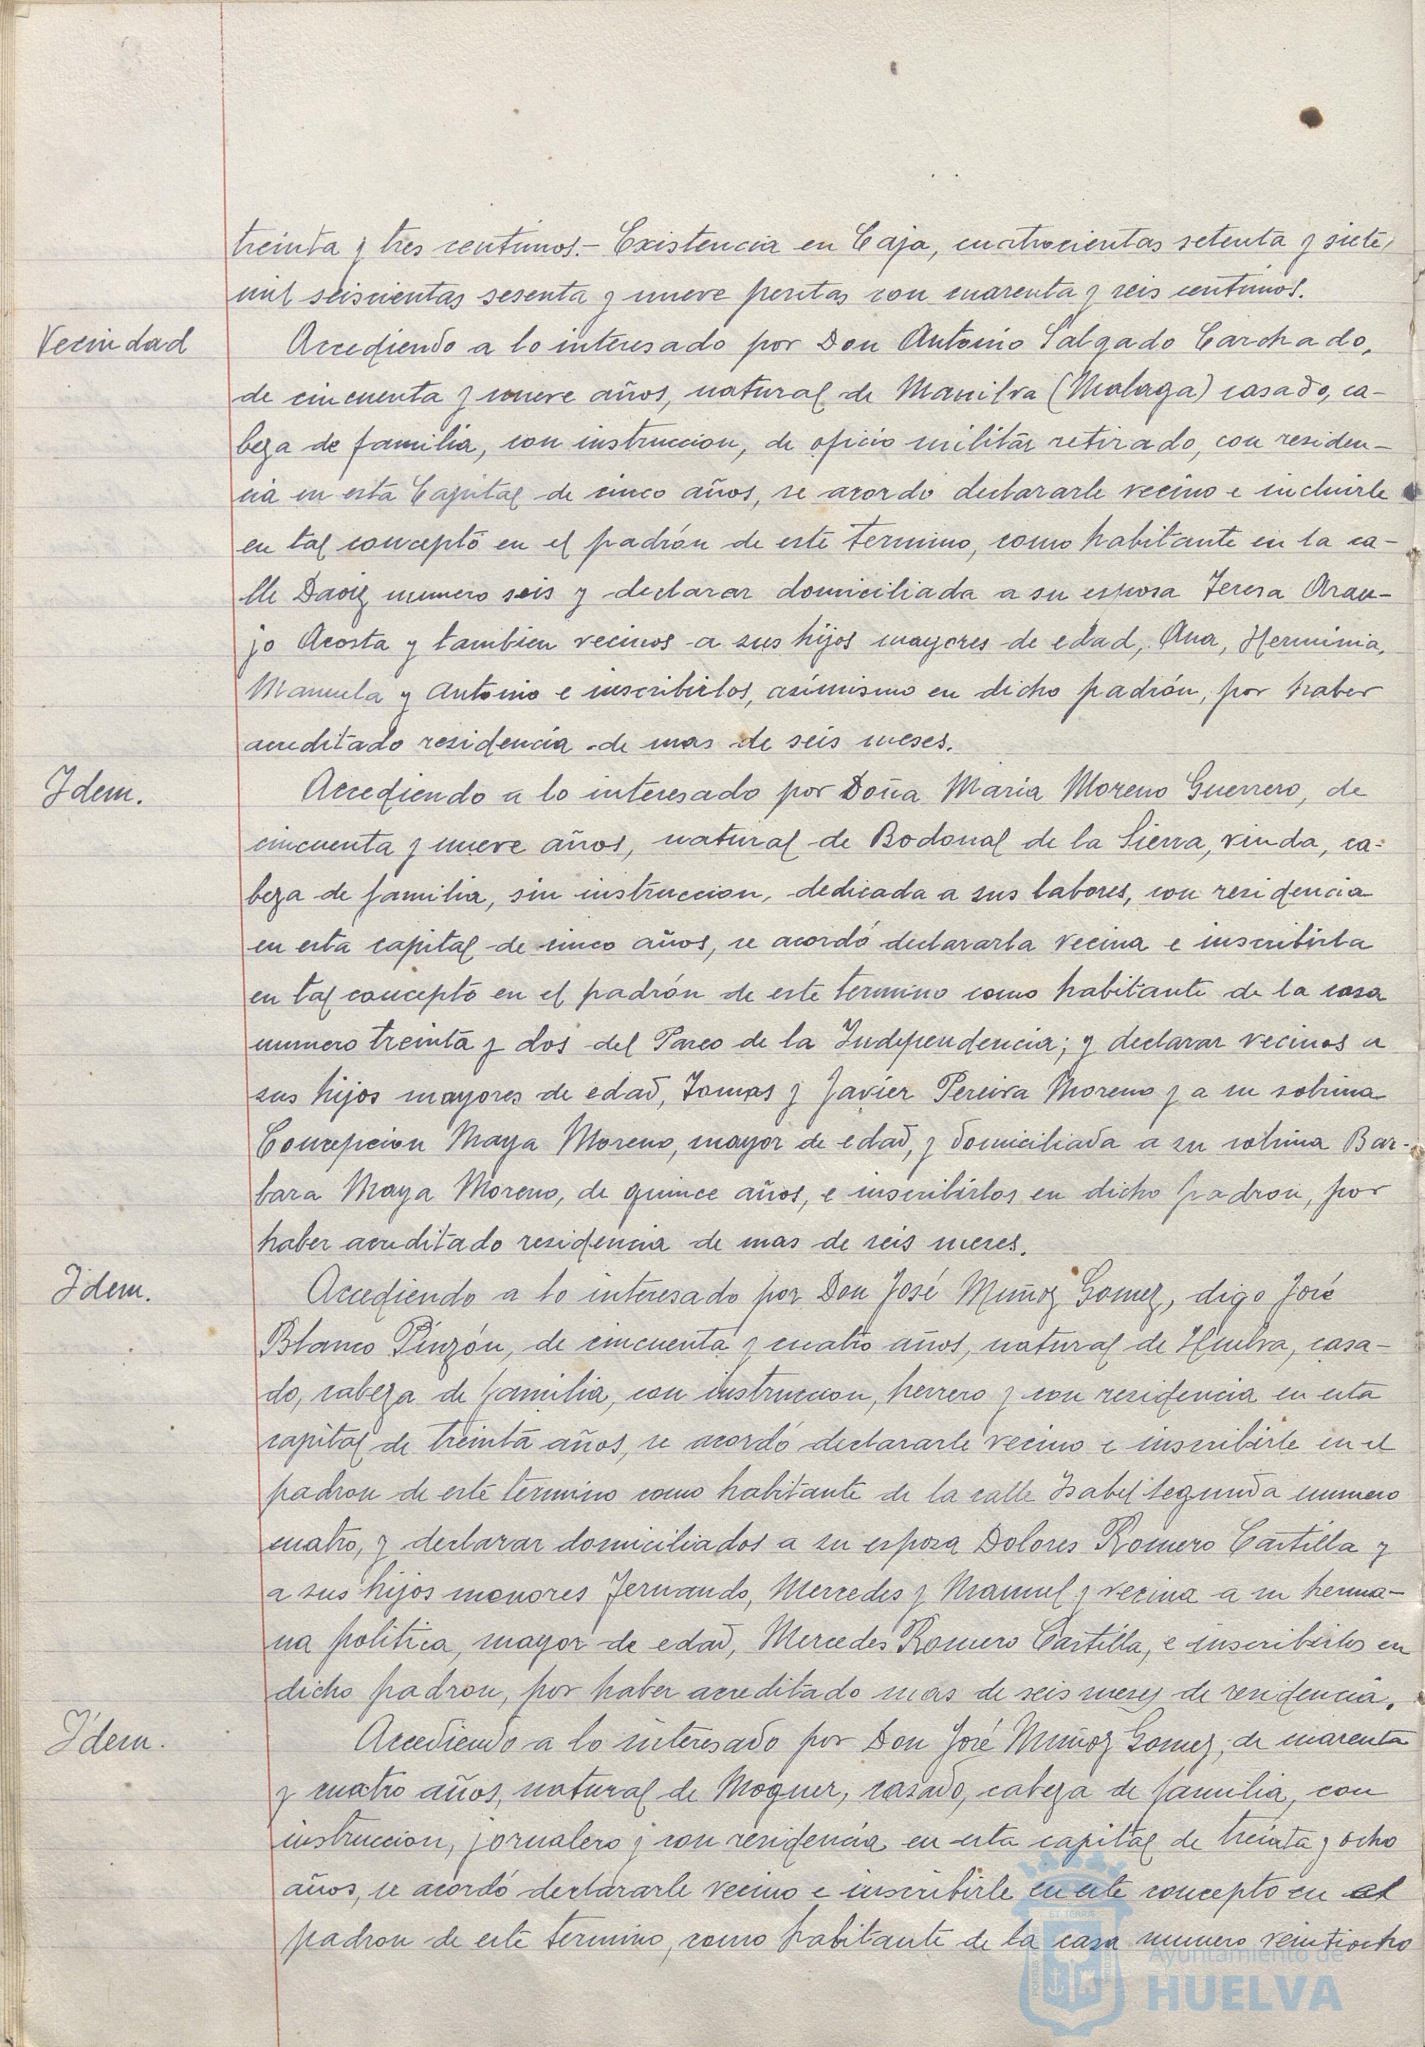 treinta y tres centimos.- Existencia en Caja, cuatrocientas setenta y siete
mil seiscientas sesenta y nueve pesetas con cuarenta y seis centimos.
Vecindad
Accediendo a lo interesado por Don Antonio Salgado Carchado,
de cincuenta y nueve años, natural de Manilva (Malaga) casado, ca-
beza de familia, con instruccion, de oficio militar retirado, con residen-
cia en esta Capital de cinco años, se acordo declararle vecino e incluirle
en tal concepto en el padrón de este termino, como habitante en la ca-
lle Daoiz numero seis y declarar domiciliada a su esposa Teresa Arau-
jo Acosta y tambien vecinos a sus hijos mayores de edad, Ana, Herminia,
Manuela y Antonio e inscribirlos, asimismo en dicho padrón, por haber
acreditado residencia de mas de seis meses.
Idem.
Accediendo a lo interesado por Doña Maria Moreno Guerrero, de
cincuenta y nueve años, natural de Bodonal de la Sierra, viuda, ca-
beza de familia, sin instruccion, dedicada a sus labores, con residencia
en esta capital de cinco años, se acordó declararla vecina e inscribirla
en tal concepto en el padrón de este termino como habitante de la casa
numero treinta y dos del Paseo de la Independencia; y declarar vecinos a
sus hijos mayores de edad, Tomas y Javier Pereira Moreno y a su sobrina
Concepcion Maya Moreno, mayor de edad, y domiciliada a su sobrina Bar-
bara Maya Moreno, de quince años, e inscribirlos en dicho padron, por
haber acreditado residencia de mas de seis meses.
Idem.
Accediendo a lo interesado por Don José Muñoz Gomez, digo José
Blanco Pinzón, de cincuenta y cuatro años, natural de Huelva, casa-
do, cabeza de familia, con instruccion, herrero y con residencia en esta
capital de treinta años, se acordó declararle vecino e inscribirle en el
padron de este termino como habitante de la calle Isabel segunda numero
cuatro, y declarar domiciliados a su esposa Dolores Romero Castilla y
a sus hijos menores Fernando, Mercedes y Manuel y vecina a su herma-
na politica, mayor de edad, Mercedes Romero Castilla, e inscribirlos en
dicho padron, por haber acreditado mas de seis meses de residencia.
Idem.
Accediendo a lo interesado por Don José Muñoz Gomez, de cuarenta
y cuatro años, natural de Moguer, casado, cabeza de familia, con
instruccion, jornalero y con residencia en esta capital de treinta y ocho
años, se acordó declararle vecino e inscribirle en este concepto en el
padron de este termino, como habitante de la casa numero veintiocho
Ayuntamiento de
HUELVA